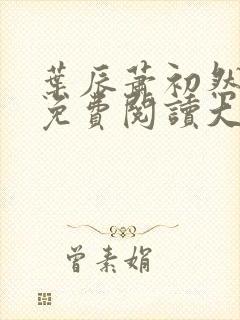 葉辰蕭初然
免費閱讀大
曾素娟